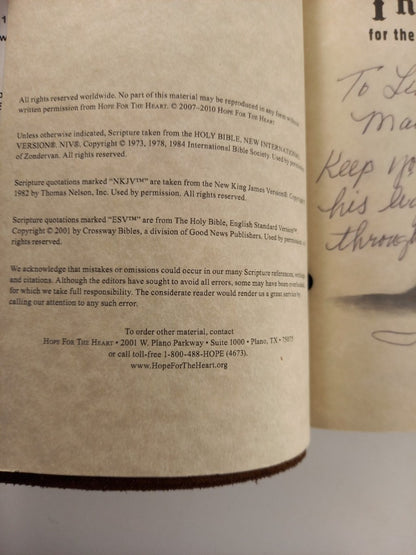 All rights reserved worldwide. No part of this material may be reproduced in any form without
written permission from HOPE FOR THE HEART. © 2007–2010 HOPE FOR THE HEART
Unless otherwise indicated, Scripture taken from the HOLY BIBLE, NEW INTERNATIONAL
VERSION®. NIV®. Copyright © 1973, 1978, 1984 International Bible Society. Used by permission
of Zondervan. All rights reserved.
Scripture quotations marked "NKJV™" are taken from the New King James Version®. Copyright ©
1982 by Thomas Nelson, Inc. Used by permission. All rights reserved.
Scripture quotations marked "ESV™" are from The Holy Bible, English Standard Version™.
Copyright © 2001 by Crossway Bibles, a division of Good News Publishers. Used by permission. All
rights reserved.
We acknowledge that mistakes or omissions could occur in our many Scripture references, writings
and citations. Although the editors have sought to avoid all errors, some may have been overlooked
for which we take full responsibility. The considerate reader would render us a great service by
calling our attention to any such error.
To order other material, contact
HOPE FOR THE HEART • 2001 W. Plano Parkway • Suite 1000 • Plano, TX • 75075
or call toll-free 1-800-488-HOPE (4673).
www.HopeForTheHeart.org
for the
To
Keep
his
through